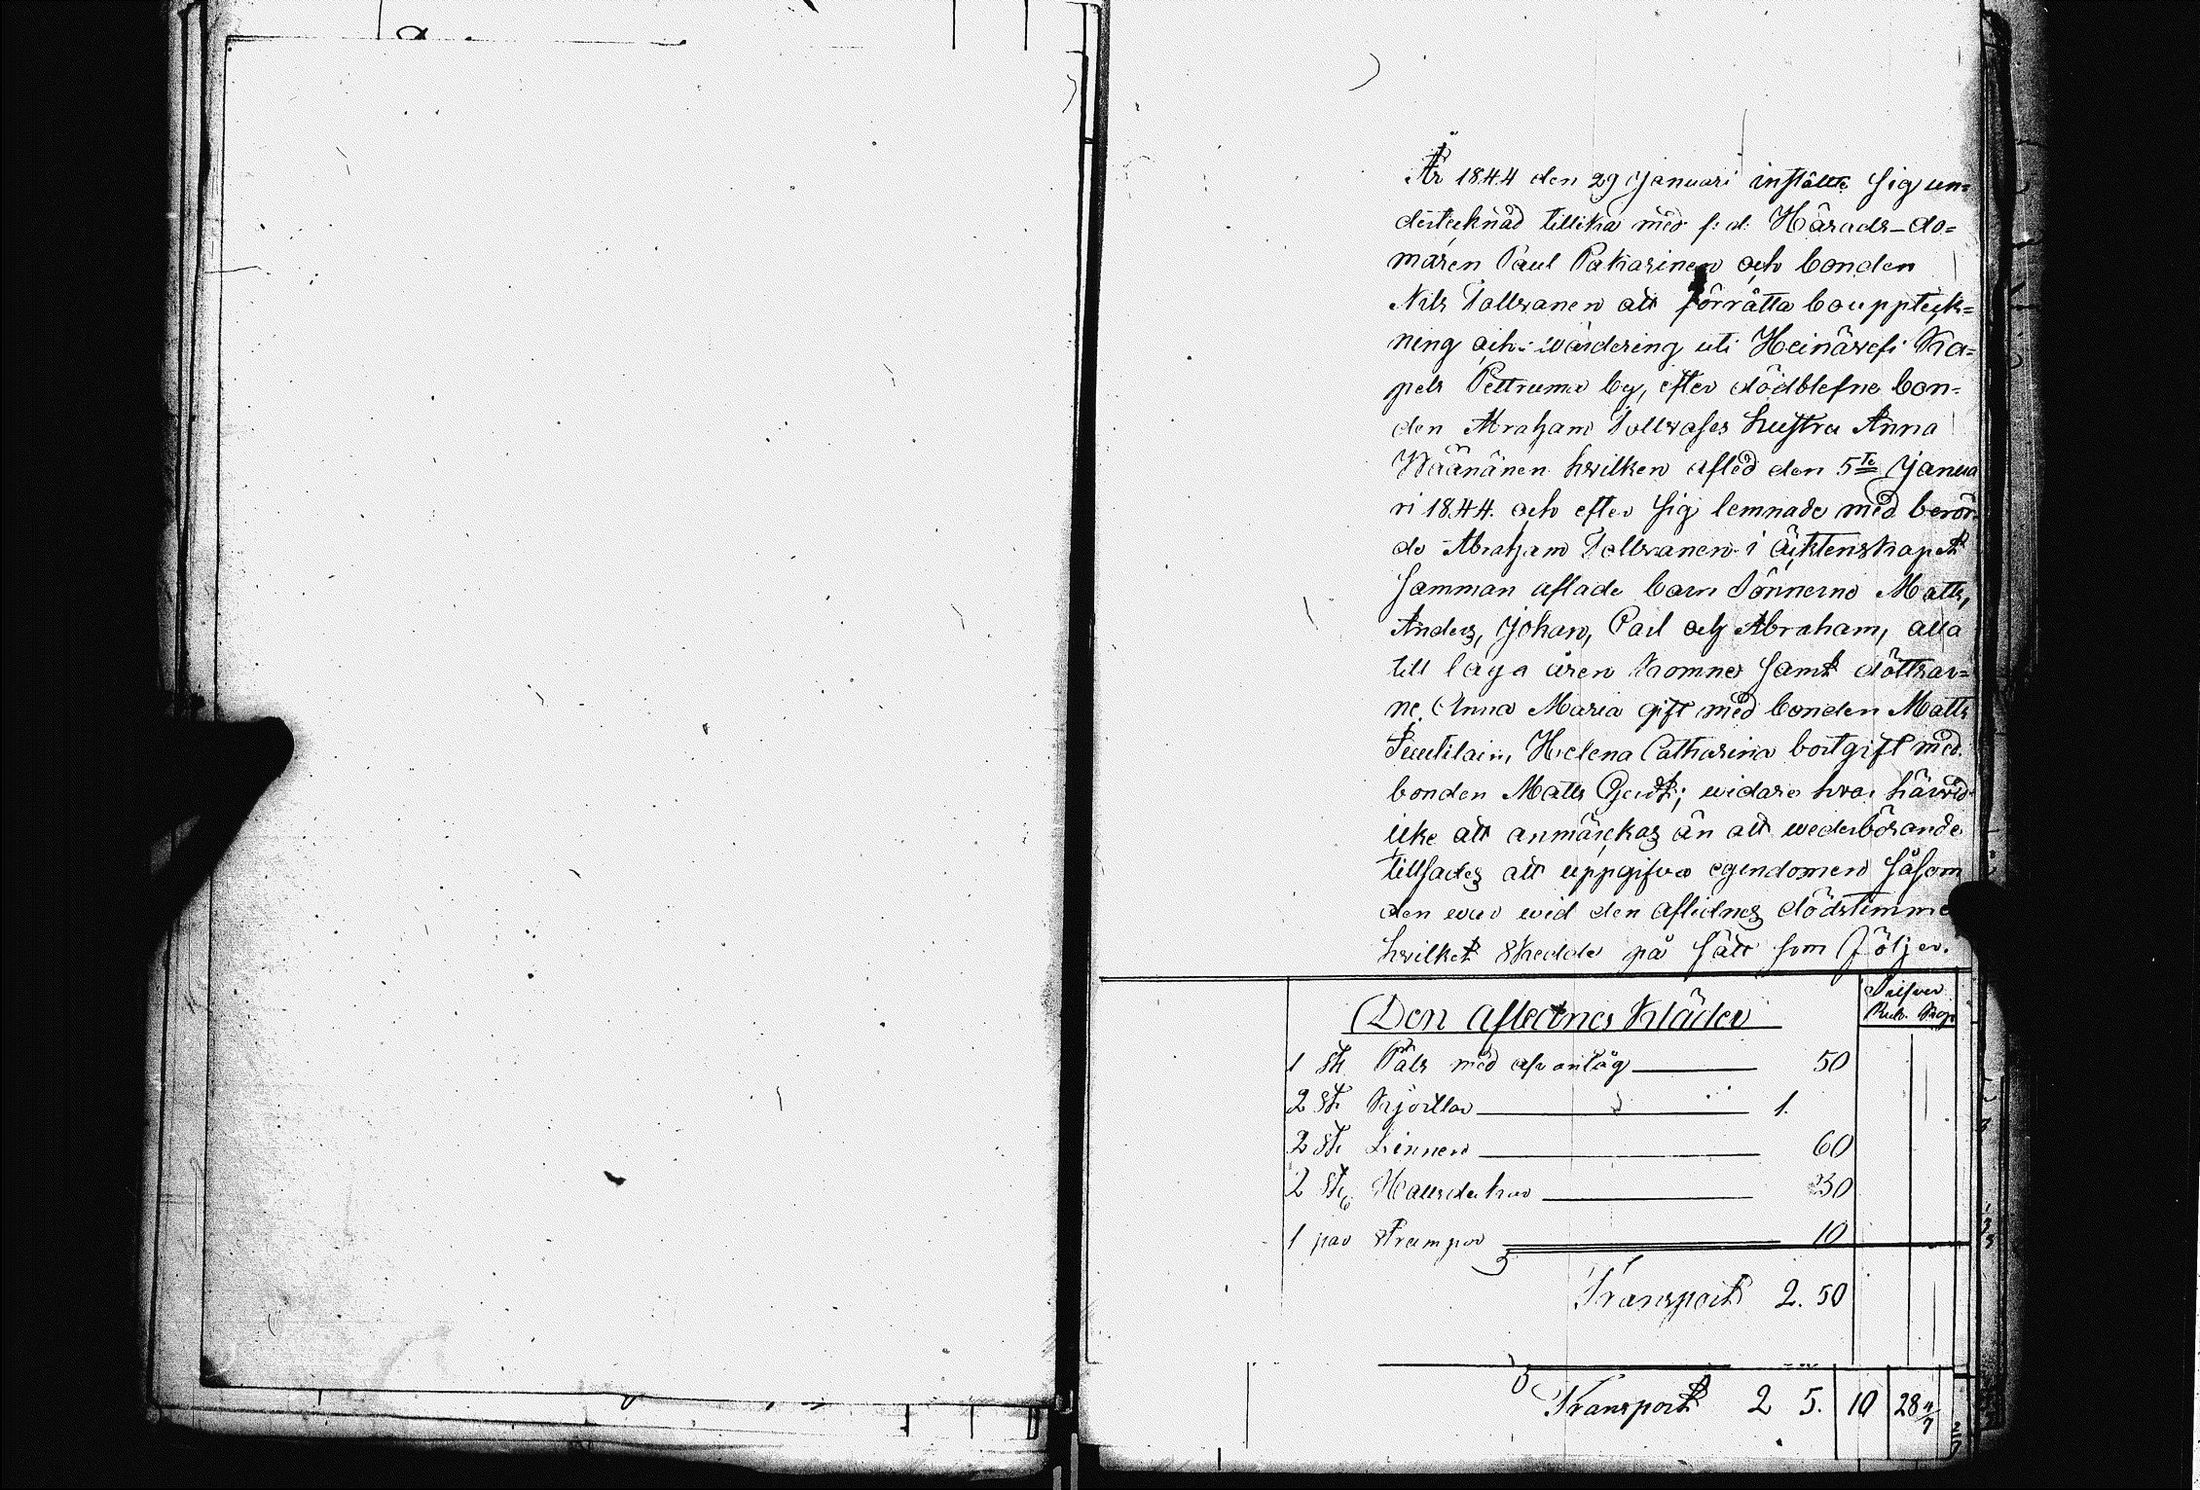 År 1844 den 29 Januari instälte sig un=
dertecknad tillika med f: d: Härads-do=
maren Paul Pakarinen och bonden
Nils Tolwanen att förrätta bouppteck=
ning och wärdering uti Heinäwesi Ka=
pels Pettruma by, efter dödblefne bon=
den Abraham Tolwases hustru Anna
Wäänänen hwilken afled den 5te Janua
ri 1844. och efter sig lemnade med berör=
de Abraham Tolwanen i äcktenskapet
samman aflade barn Sönnerne Matts,
Anders, Johan, Paul och Abraham, alla
till laga åren komne samt döttrar=
ne Anna Maria gift med bonden Matts
Helena Catharina bortgift med
bonden Matts widare hwar härwid
icke att anmärckas än att wederbörande
tillsades att uppgifwa egendomen såsom
den war wid den aflidnes dödstimme
hwilket skedde på sätt som följer.
Silfver
Rub. Kop
Den aflednes Kläder
1 St. Päls med 50
2 St Kjortlar 1.
2 St Linnen 60
2 St. Halsdukar 30
1 par Strumpor 10
Transport 2. 50
Transport 2 5. 10 28 4/7